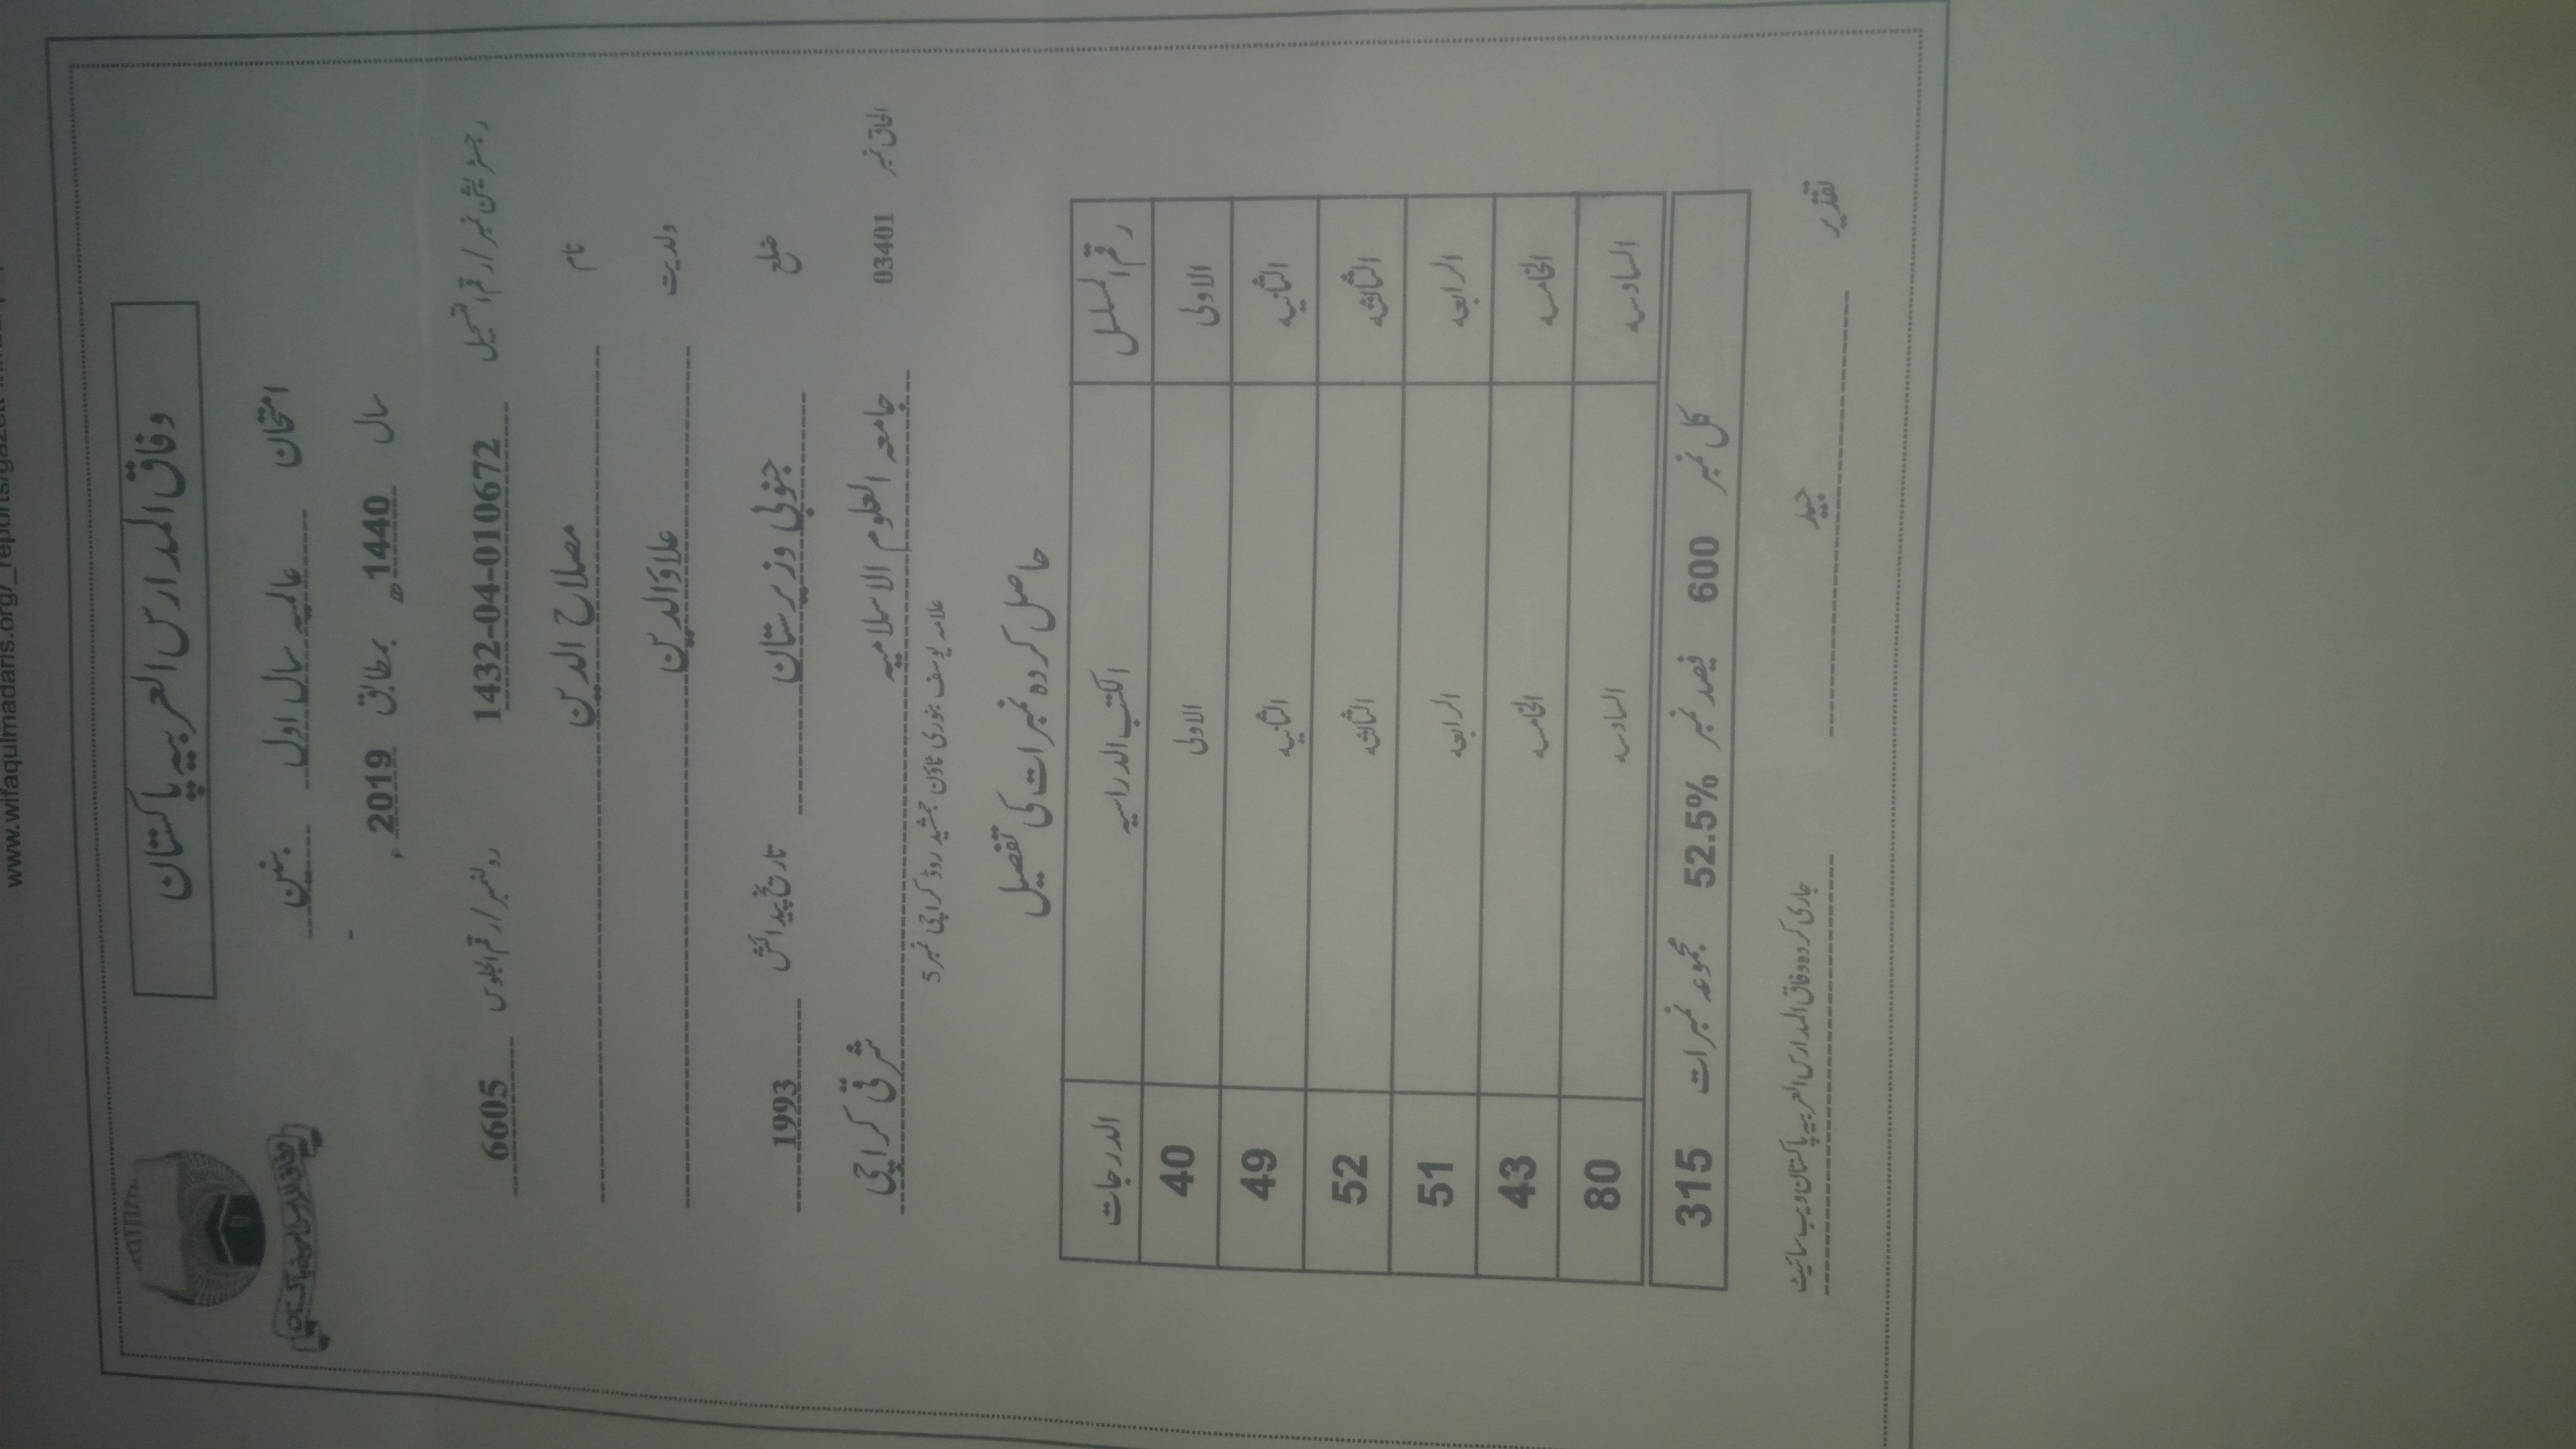 www.wifaqulmadaris.org/_reports/gazett
وفاق المدارس العربیہ پاکستان
امتحان عالمیہ سال اول بنین
سال 1440ھ بمطابق 2019ء
رجسٹریشن نمبر/رقم التسجیل 1432-04-010672 رولنمبر/رقم الجلوس 6605
نام مصلاح الدین
ولدیت علاؤالدین
ضلع جنوبی وزیرستان تاریخ پیدائش 1993
الحاق نمبر 03401 جامعہ العلوم الاسلامیہ شرقی کراچی
علامہ یوسف بنوری ٹاؤن جمشید روڈ کراچی نمبر 5
حاصل کردہ نمبرات کی تفصیل
رقم المسلسل الکتب الدراسیہ الدرجات
الاولی الاولی 40
الثانیہ الثانیہ 49
الثالثہ الثالثہ 52
الرابعہ الرابعہ 51
الخامسہ الخامسہ 43
السادسہ السادسہ 80
کل نمبر 600 فیصد نمبر 52.5% مجموعہ نمبرات 315
تقدیر جید جاری کردہ وفاق المدارس العربیہ پاکستان ویب سائیٹ